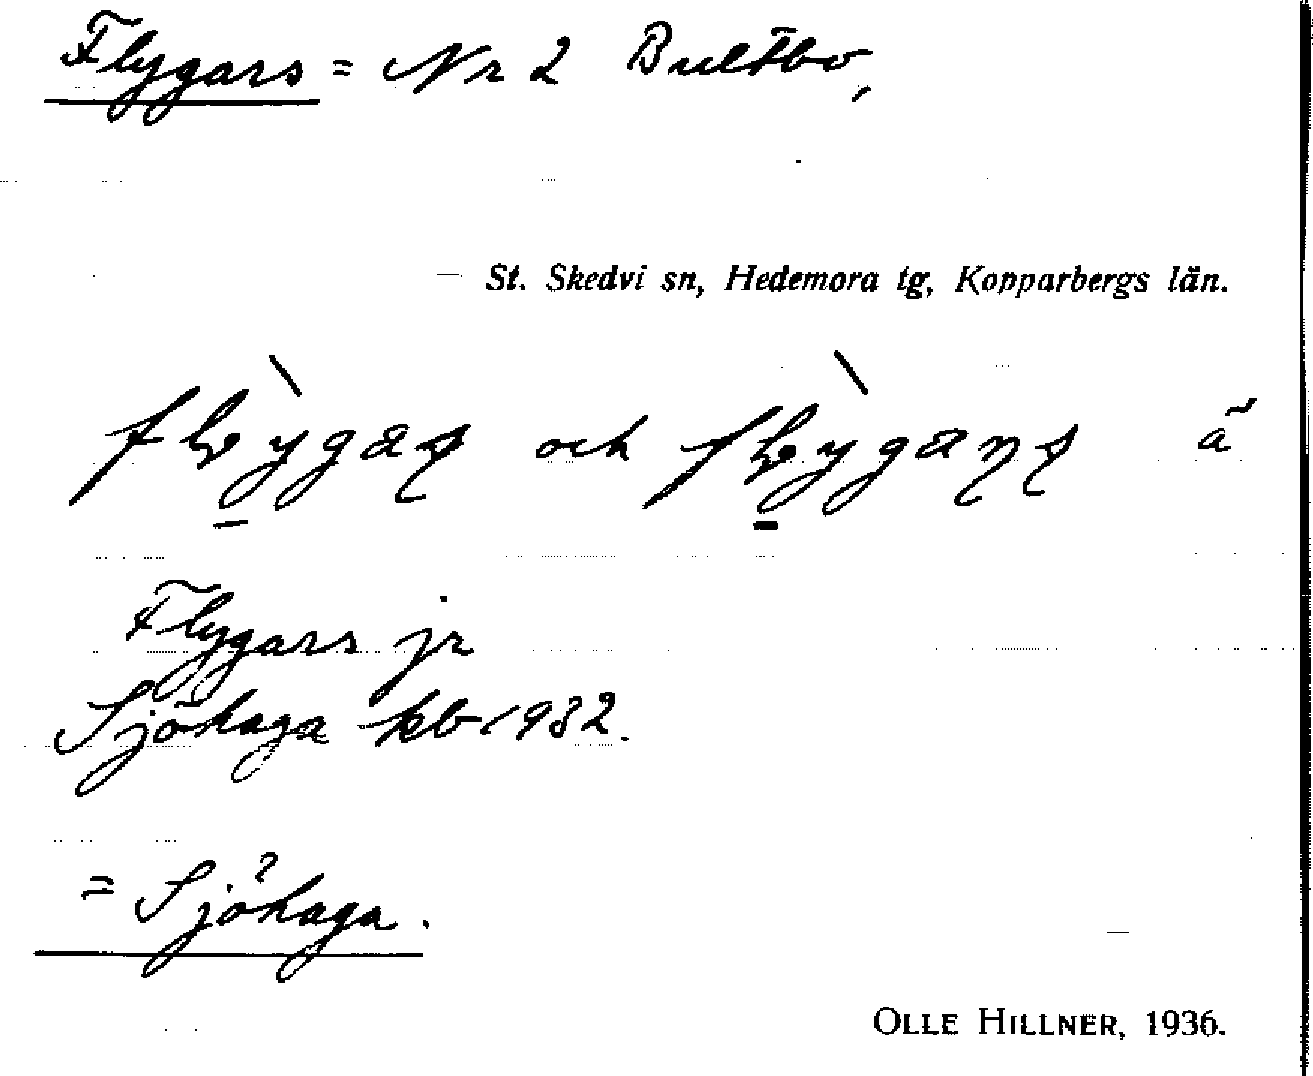 Flygars = Nr 2 Bultbo,
St. Skedvi sn, Hedemora tg, Kopparbergs län.
och ã
Flygars jr
Sjöhaga kb 1932.
= Sjöhaga.
OLLE HILLNER, 1936.